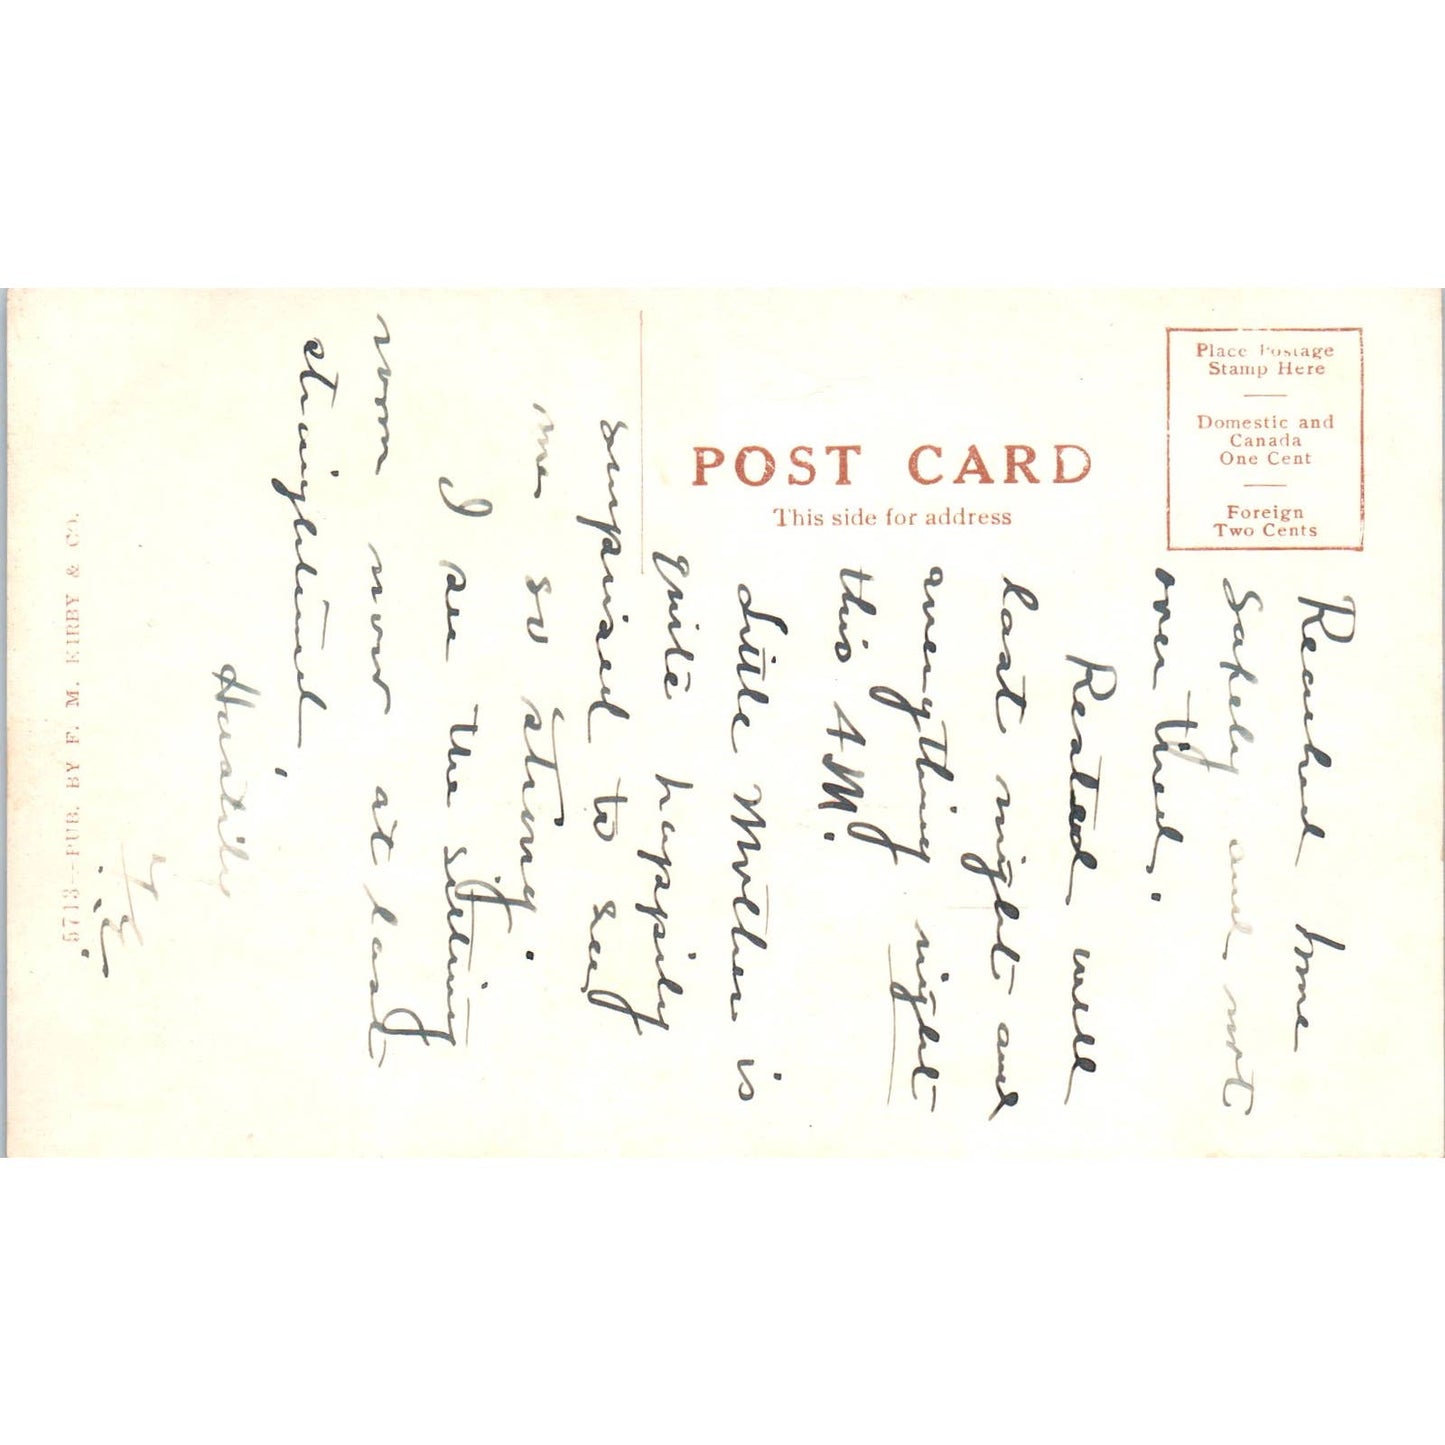 POST CARD
This side for address
Place Postage
Stamp Here
Domestic and
Canada
One Cent
Foreign
Two Cents
5713—PUB. BY F. M. KIRBY & CO.
Reached home
Safely and not
over tired.
Rested well
last night and
everything right
this AM.
Little Mother is
quite happily
surprised to see
me so strong.
I see the sitting
room now at last
straightened.
Hastily